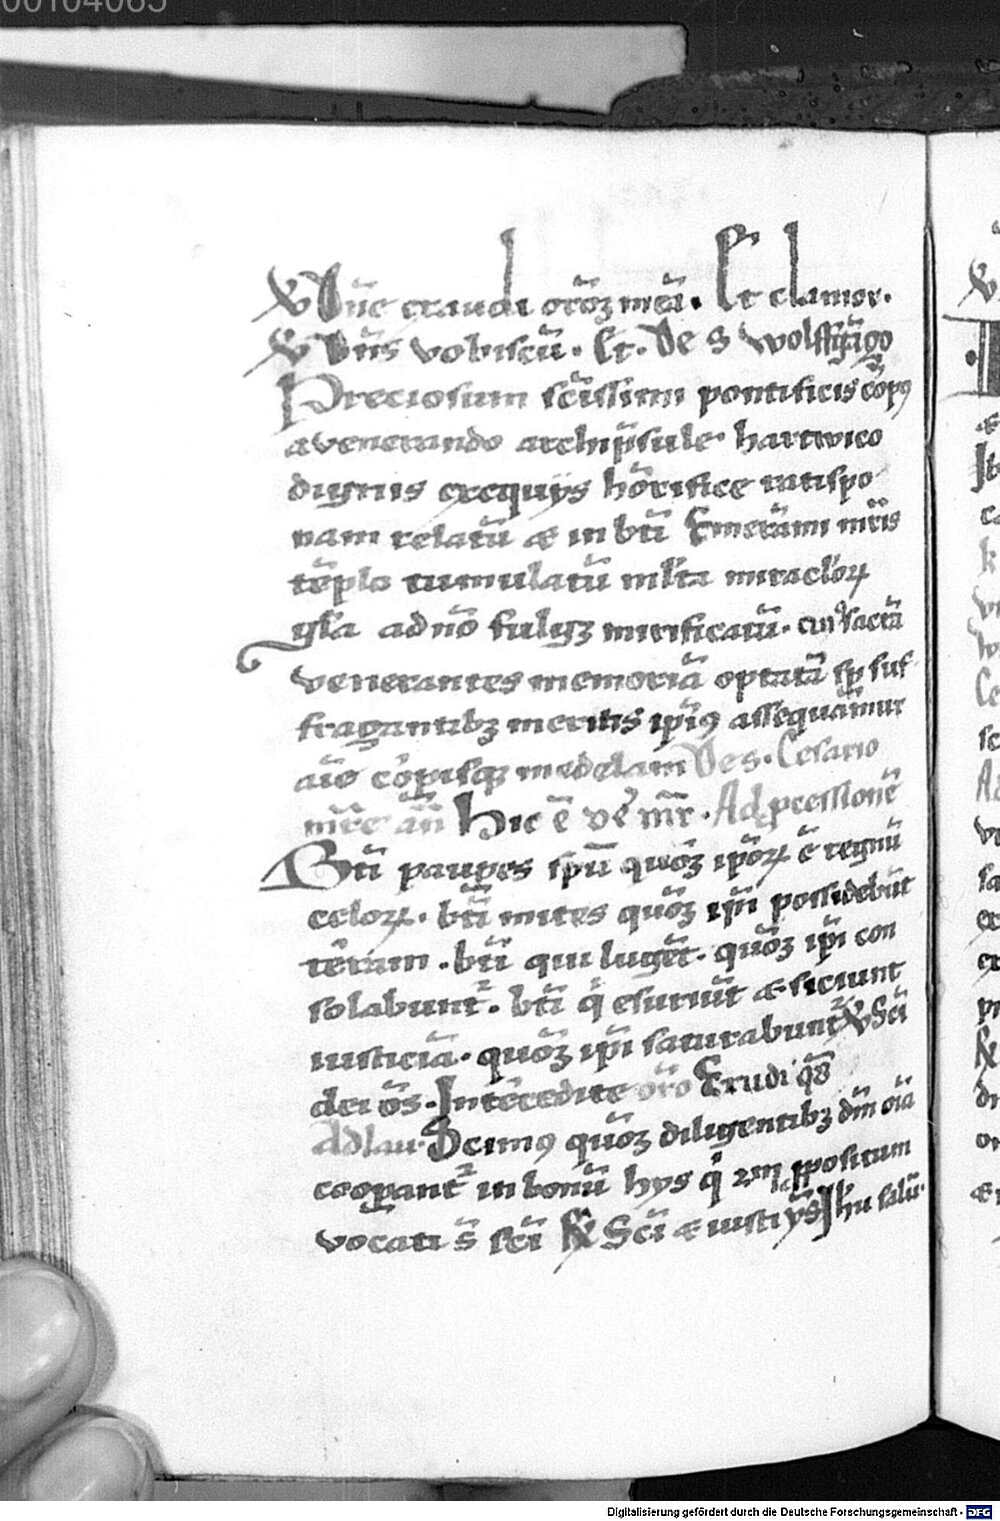 00104065
V Dn̄e exaudi orōꝫ meā. Et clamor.
V Dn̄s vobiscū. Et. De S Wolffgāgo
Preciosum sc̄issimi pontificis corpꝯ
a venerando archip̄sule hartwico
dignis exequijs hōrifice ratispo
nam relatū & in bt̄i Emerāmi mr̄is
tēplo tumulatū ml̄ta miraclorꝝ
ad nō fulgꝫ mirificatū. cuiꝯ sacrā
venerantes memoriā optatā suf
fragantibꝫ meritis ip̄iꝯ assequamur
aīe corpisqꝫ medelam De s. Cesario
mr̄e an̄ Hic ē ve᷑ mr̄. Ad p̲cessionē
Bt̄i paup̲es sp̄u quōꝫ ip̄orꝝ ē regnū
celorꝝ. bt̄i mites quōꝫ ip̄i possidebūt
terram. bt̄i qui lugēt. quōꝫ ip̄i con
solabunt᷑. bt̄i q̇ esuriūt & siciunt
iusticiā. quōꝫ ip̄i saturabunt᷑ V Sc̄i
dei om̄s. Intercedite
Ad lau. Scimꝯ quōꝫ diligentibꝫ dm̄ oīa
coop̲ant᷑ in bonū hys q̇ 2m p̲positum
vocati s̄ sc̄i ℟ Sc̄i & iusti Ihū salū.
Digitalisierung gefördert durch die Deutsche Forschungsgemeinschaft - DFG